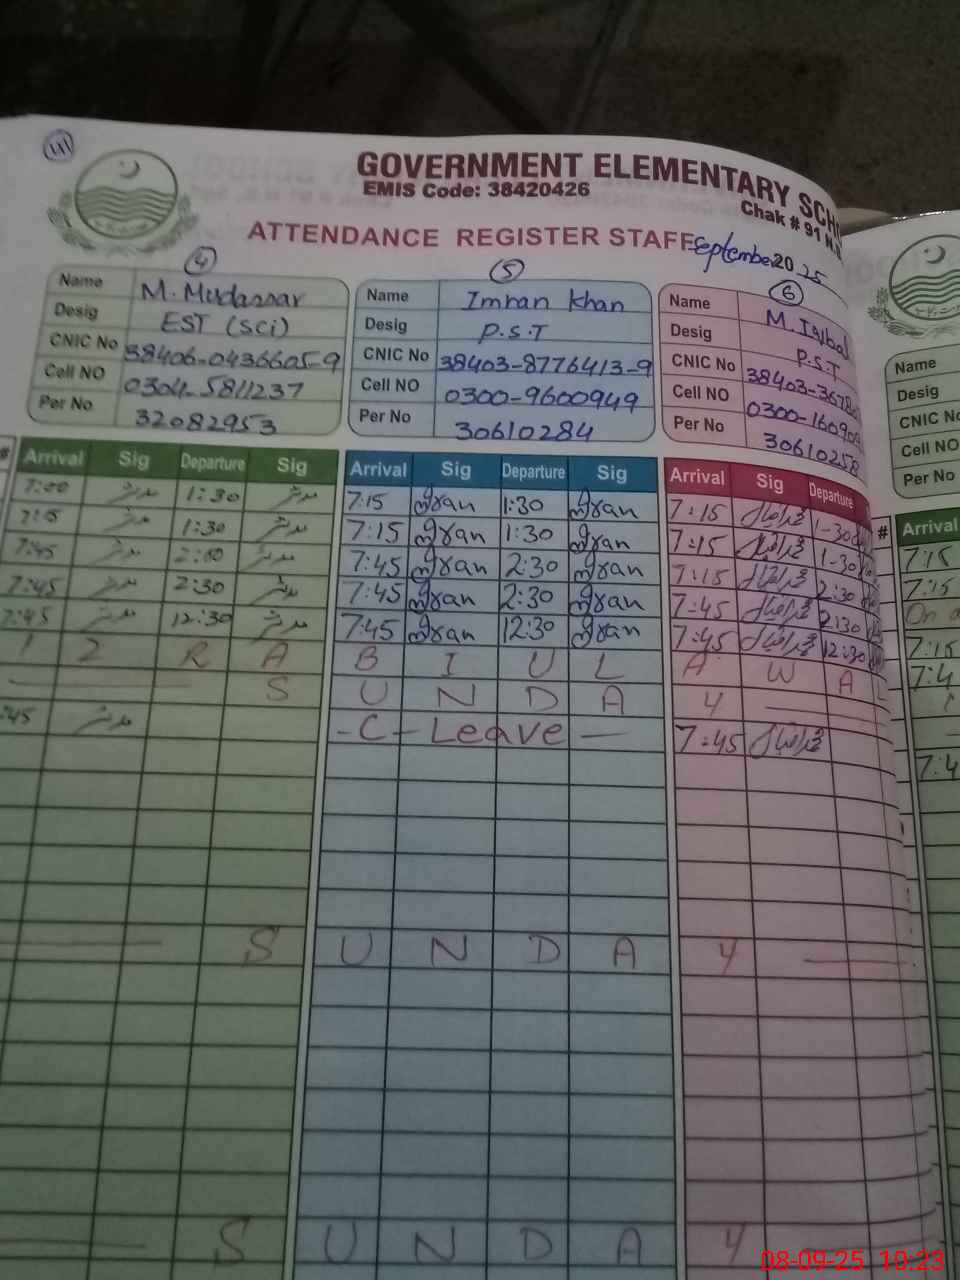 GOVERNMENT ELEMENTARY SCHO
EMIS Code: 38420426
Chak # 91 N.
ATTENDANCE REGISTER STAFF September 2025
4 5 6
Name M. Mudassar
Desig EST (Sci)
CNIC No 38406-0436605-9
Cell NO 0304-5811237
Per No 32082953
Name Imran Khan
Desig P.S.T
CNIC No 38403-8776413-9
Cell NO 0300-9600949
Per No 30610284
Name M. Iqbal
Desig P.S.T
CNIC No 38403-3678
Cell NO 0300-16090
Per No 30610258
Name
Desig
CNIC No
Cell NO
Per No
# Arrival Sig Departure Sig Arrival Sig Departure Sig Arrival Sig Departure # Arrival
7:00 مدثر 1:30 مدثر 7:15 عمران 1:30 عمران 7:15 محمد اقبال 1-30 7:15
7:15 مدثر 1:30 مدثر 7:15 عمران 1:30 عمران 7:15 محمد اقبال 1-30 7:15
7:45 مدثر مدثر 7:45 عمران 2:30 عمران 7:15 محمد اقبال 2:30 On
7:45 مدثر 2:30 مدثر 7:45 عمران 2:30 عمران 7:45 محمد اقبال 2:30 7:15
7:45 مدثر 12:30 مدثر 7:45 عمران 12:30 عمران 7:45 محمد اقبال 12:30 7:4
1 2 R A B I U L A W A L
S U N D A Y
:45 مدثر -C-Leave- 7:45 محمد اقبال 7:4
S U N D A Y
S U N D A Y
08-09-25 10:23